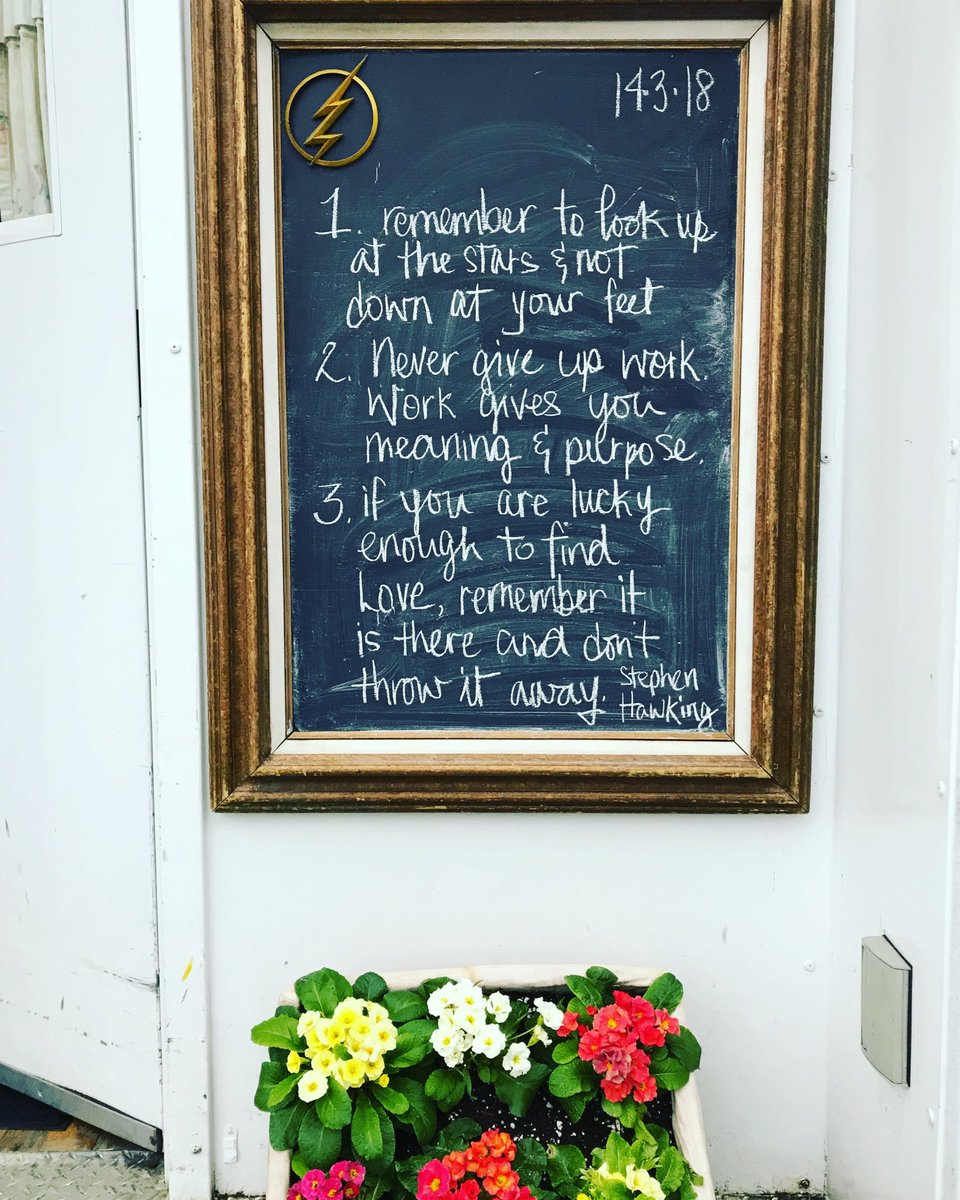 143.18
1. remember to look up
at the stars & not
down at your feet
2. Never give up work.
Work gives you
meaning & purpose.
3. if you are lucky
enough to find
Love, remember it
is there and don't
throw it away.
Stephen
Hawking